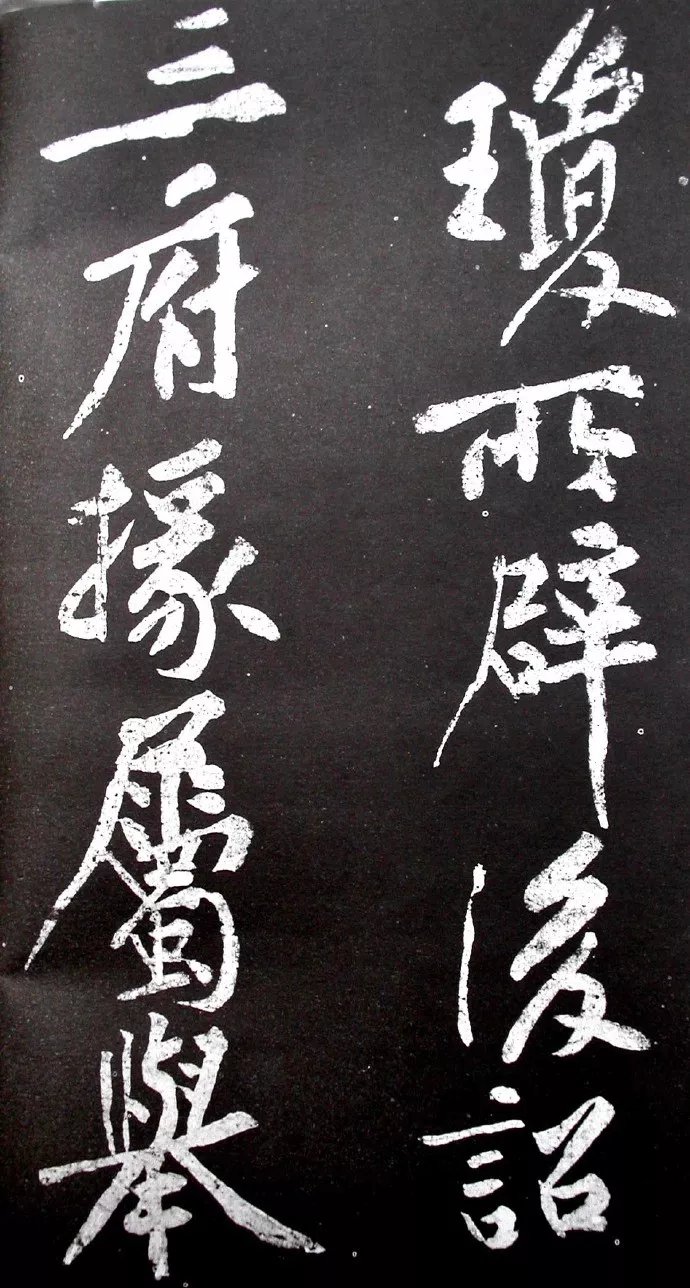 瓊所辟後詔
三府掾屬舉